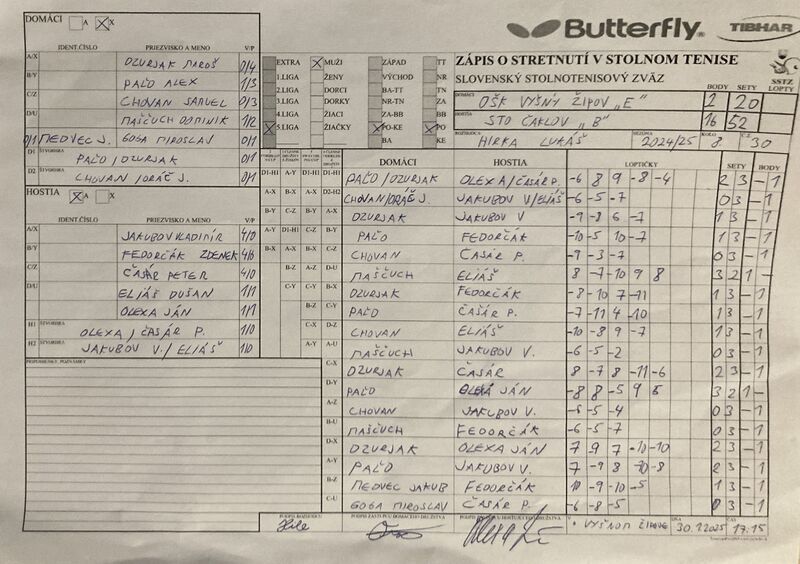 DOMÁCI A X
Butterfly
TIBHAR
IDENT.ČÍSLO PRIEZVISKO A MENO V/P
A/X DZURJAK MAROŠ 0/4
B/Y PAĽO ALEX 1/3
C/Z CHOVAN SAMUEL 0/3
D/U MAŠČUCH DOMINIK 1/2
0/1 MEDVEC J. GOGA MIROSLAV 0/1
D1 ŠTVORHRA PAĽO / DZURJAK 0/1
D2 ŠTVORHRA CHOVAN / ORÁČ J. 0/1
HOSTIA A X
IDENT.ČÍSLO PRIEZVISKO A MENO V/P
A/X JAKUBOV VLADIMÍR 4/0
B/Y FEDORČÁK ZDENEK 4/0
C/Z ČASÁR PETER 4/0
D/U ELIÁŠ DUŠAN 1/1
OLEXA JÁN 1/1
H1 ŠTVORHRA OLEXA / ČASÁR P. 1/0
H2 ŠTVORHRA JAKUBOV V. / ELIÁŠ 1/0
PRIPOMIENKY, POZNÁMKY
EXTRA MUŽI ZÁPAD TT
1.LIGA ŽENY VÝCHOD NR
2.LIGA DORCI BA-TT TN
3.LIGA DORKY NR-TN ZA
4.LIGA ŽIACI ZA-BB BB
5.LIGA ŽIAČKY PO-KE PO
BA KE
ZÁPIS O STRETNUTÍ V STOLNOM TENISE
SLOVENSKÝ STOLNOTENISOVÝ ZVÄZ
SSTZ
BODY SETY LOPTY
DOMÁCI OŠK VYŠNÝ ŽIPOV "E" 2 20
HOSTIA STO ČAKLOV "B" 16 52
ROZHODCA HIRKA LUKÁŠ 2024/25 KOLO 8 Č.Z. 30
DOMÁCI HOSTIA LOPTIČKY SETY BODY
D1-H1 PAĽO / DZURJAK OLEXA / ČASÁR P. -6 8 9 -8 -4 2 3 - 1
D2-H2 CHOVAN / ORÁČ J. JAKUBOV V / ELIÁŠ -6 -5 -7 0 3 - 1
A-X DZURJAK JAKUBOV V -9 -8 6 -7 1 3 - 1
B-Y PAĽO FEDORČÁK -10 -5 10 -7 1 3 - 1
C-Z CHOVAN ČASÁR P. -9 -3 -7 0 3 - 1
D-U MAŠČUCH ELIÁŠ 8 -7 -10 9 8 3 2 1 -
B-X DZURJAK FEDORČÁK -8 -10 7 -11 1 3 - 1
C-Y PAĽO ČASÁR P. -7 -11 4 -10 1 3 - 1
C-Z CHOVAN ELIÁŠ -10 -8 9 -7 1 3 - 1
A-U MAŠČUCH JAKUBOV V. -6 -5 -2 0 3 - 1
C-X DZURJAK ČASÁR 8 -7 8 -11 -6 2 3 - 1
D-Y PAĽO OLEXA JÁN -8 8 -5 9 6 3 2 1 -
A-Z CHOVAN JAKUBOV V. -6 -5 -4 0 3 - 1
B-U MAŠČUCH FEDORČÁK -6 -5 -7 0 3 - 1
D-X DZURJAK OLEXA JÁN 7 -9 7 -10 -10 2 3 - 1
A-Y PAĽO JAKUBOV V. 7 -9 8 -10 -8 2 3 - 1
B-Z MEDVEC JAKUB FEDORČÁK 10 -9 -10 -5 1 3 - 1
C-U GOGA MIROSLAV ČASÁR P. -6 -8 -5 0 3 - 1
PODPIS ROZHODCU PODPIS ZÁSTUPCU DOMÁCEHO DRUŽSTVA PODPIS ZÁSTUPCU HOSŤUJÚCEHO DRUŽSTVA V VYŠNOM ŽIPOVE DŇA 30.1.2025 ČAS 17:15